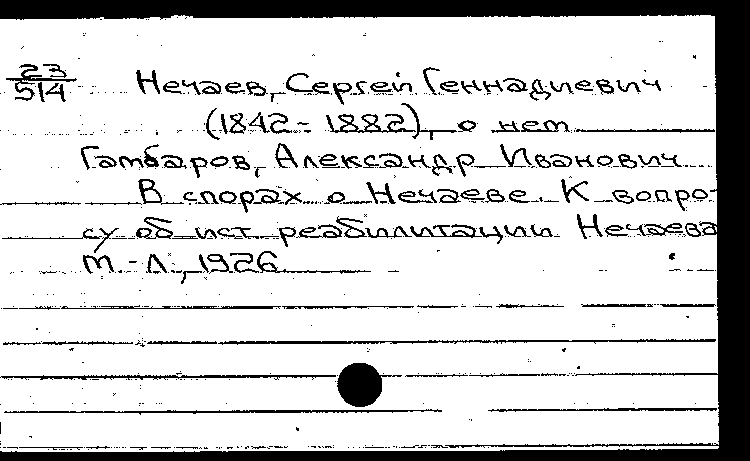 23
514
Нечаев, Сергей Геннадиевич
(1842-1882), о нем
Гамбаров, Александр Иванович
В спорах о Нечаеве. К вопро-
су об ист реабилитации Нечаева
М.-Л., 1926